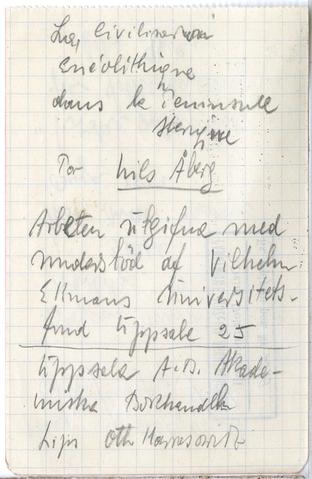 La Civilisation
énéolithique
dans la Péninsule
Iberique
Por Nils Åberg
Arbeten utgifna med
understöd af Vilhelm
Ekmans Universitets-
fond Uppsala 25
Uppsala A.B. Akade-
miska Bokhandeln
Lips Otto Harrasowitz